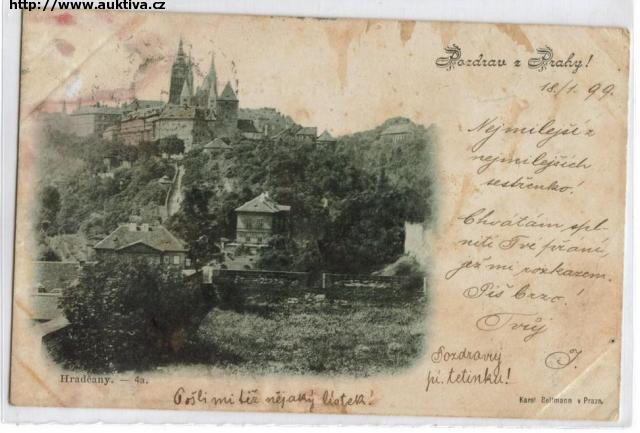 http://www.auktiva.cz
Pozdrav z Prahy!
18/1. 99.
Nejmilejší z
nejmilejších
sestřenko!
Chvátám spl-
niti Tvé přání,
jež mi rozkazem.
Piš brzo!
Tvůj
J.
Pozdravuj
pí. tetinku!
Hradčany. — 4a.
Pošli mi též nějaký lístek!
Karel Bellmann v Praze.